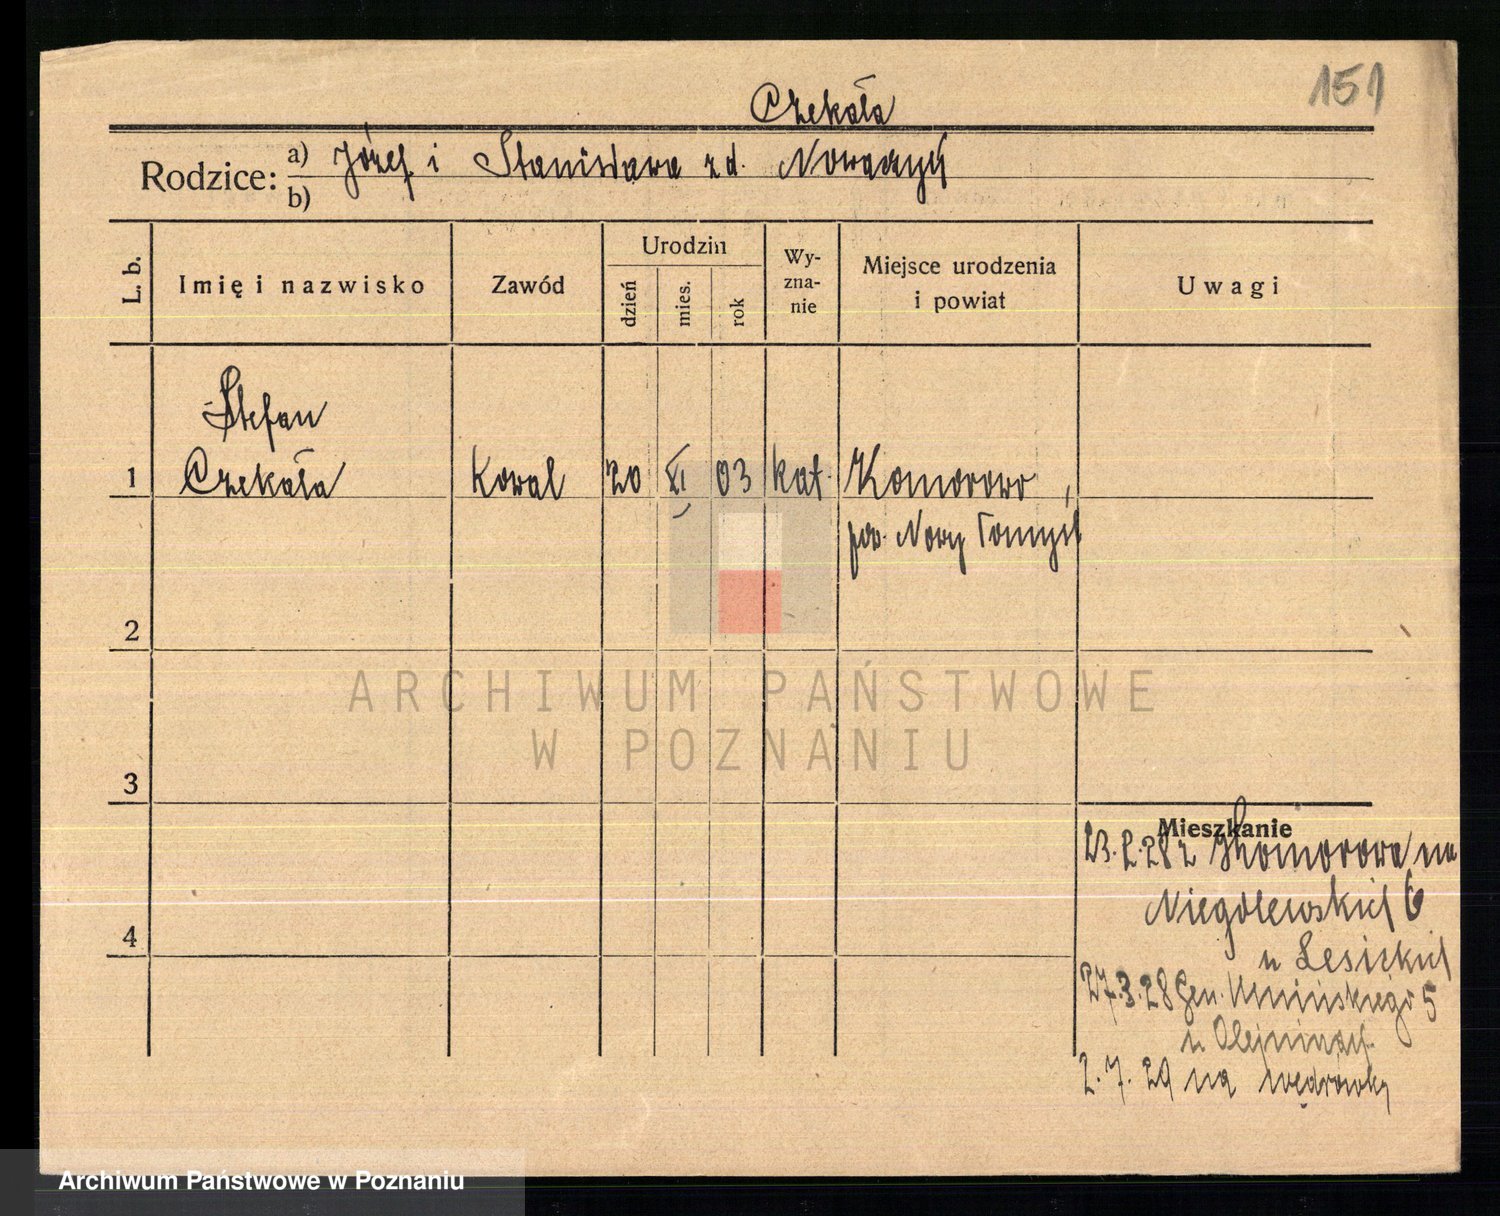 151
Czekała
Rodzice: a) Józef i Stanisława z d.
b)
L. b.
Imię i nazwisko
Zawód
Urodzin
dzień
mies.
rok
Wy-
zna-
nie
Miejsce urodzenia
i powiat
Uwagi
Stefan
1 Czekała kowal 20 XI 03 kat. Komorowo,
pow. Nowy Tomyśl
2
ARCHIWUM PAŃSTWOWE
W POZNANIU
3
Mieszkanie
23.2.28 z Komorowa na
Niegolewskich 6
4
u
27.3.28 Gen. Umińskiego 5
u
2.7.29 na wędrówkę
Archiwum Państwowe w Poznaniu